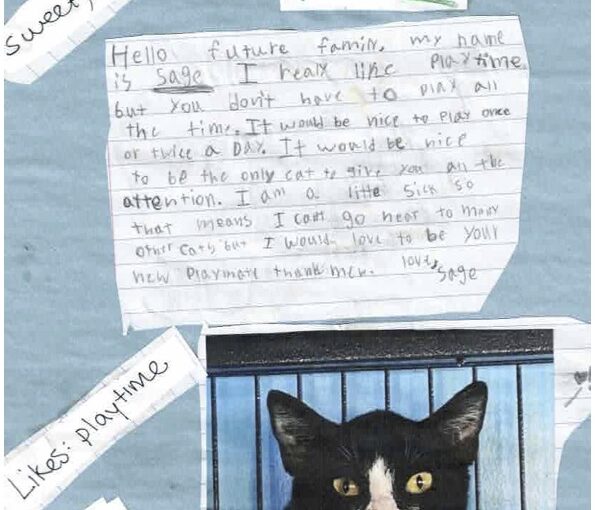 sweet,
Hello future famin, my name
is Sage I realy like Playtime
but you don't have to play all
the time. It would be nice to Play once
or twice a Day. It would be nice
to be the only cat to give you all the
attention. I am a litte sick so
that means I cant go near to many
other cats but I would love to be your
new Playmate thank mew. love, Sage
Likes: playtime